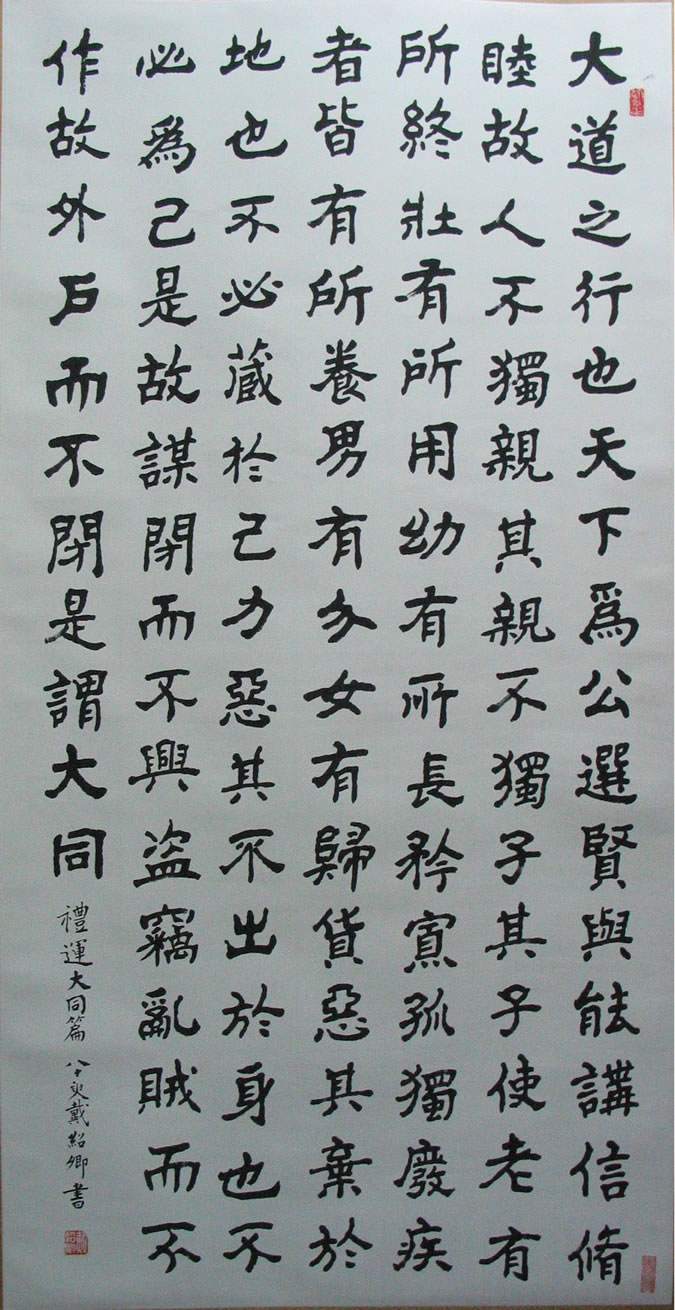 大道之行也天下爲公選賢與能講信脩
睦故人不獨親其親不獨子其子使老有
所終壯有所用幼有所長矜寡孤獨廢疾
者皆有所養男有分女有歸貨惡其棄於
地也不必藏於己力惡其不出於身也不
必爲己是故謀閉而不興盜竊亂賊而不
作故外戶而不閉是謂大同
禮運大同篇 八十叟戴紹卿書